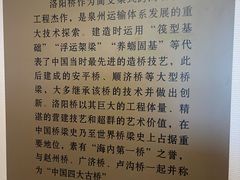 洛阳桥作为
工程杰作，是泉州运输体系发展的重
大技术探索。建造时运用“筏型基
础”“浮运架梁”“养蛎固基”等代
表了中国当时最先进的造桥技艺，此
后建成的安平桥、顺济桥等大型桥
梁，大多继承该桥的技术并做出创
新。洛阳桥以其巨大的工程体量、精
湛的营建技艺和超群的艺术价值，在
中国桥梁史乃至世界桥梁史上占据重
要地位，素有“海内第一桥”之誉，
与赵州桥、广济桥、卢沟桥一起并称
为“中国四大古桥”